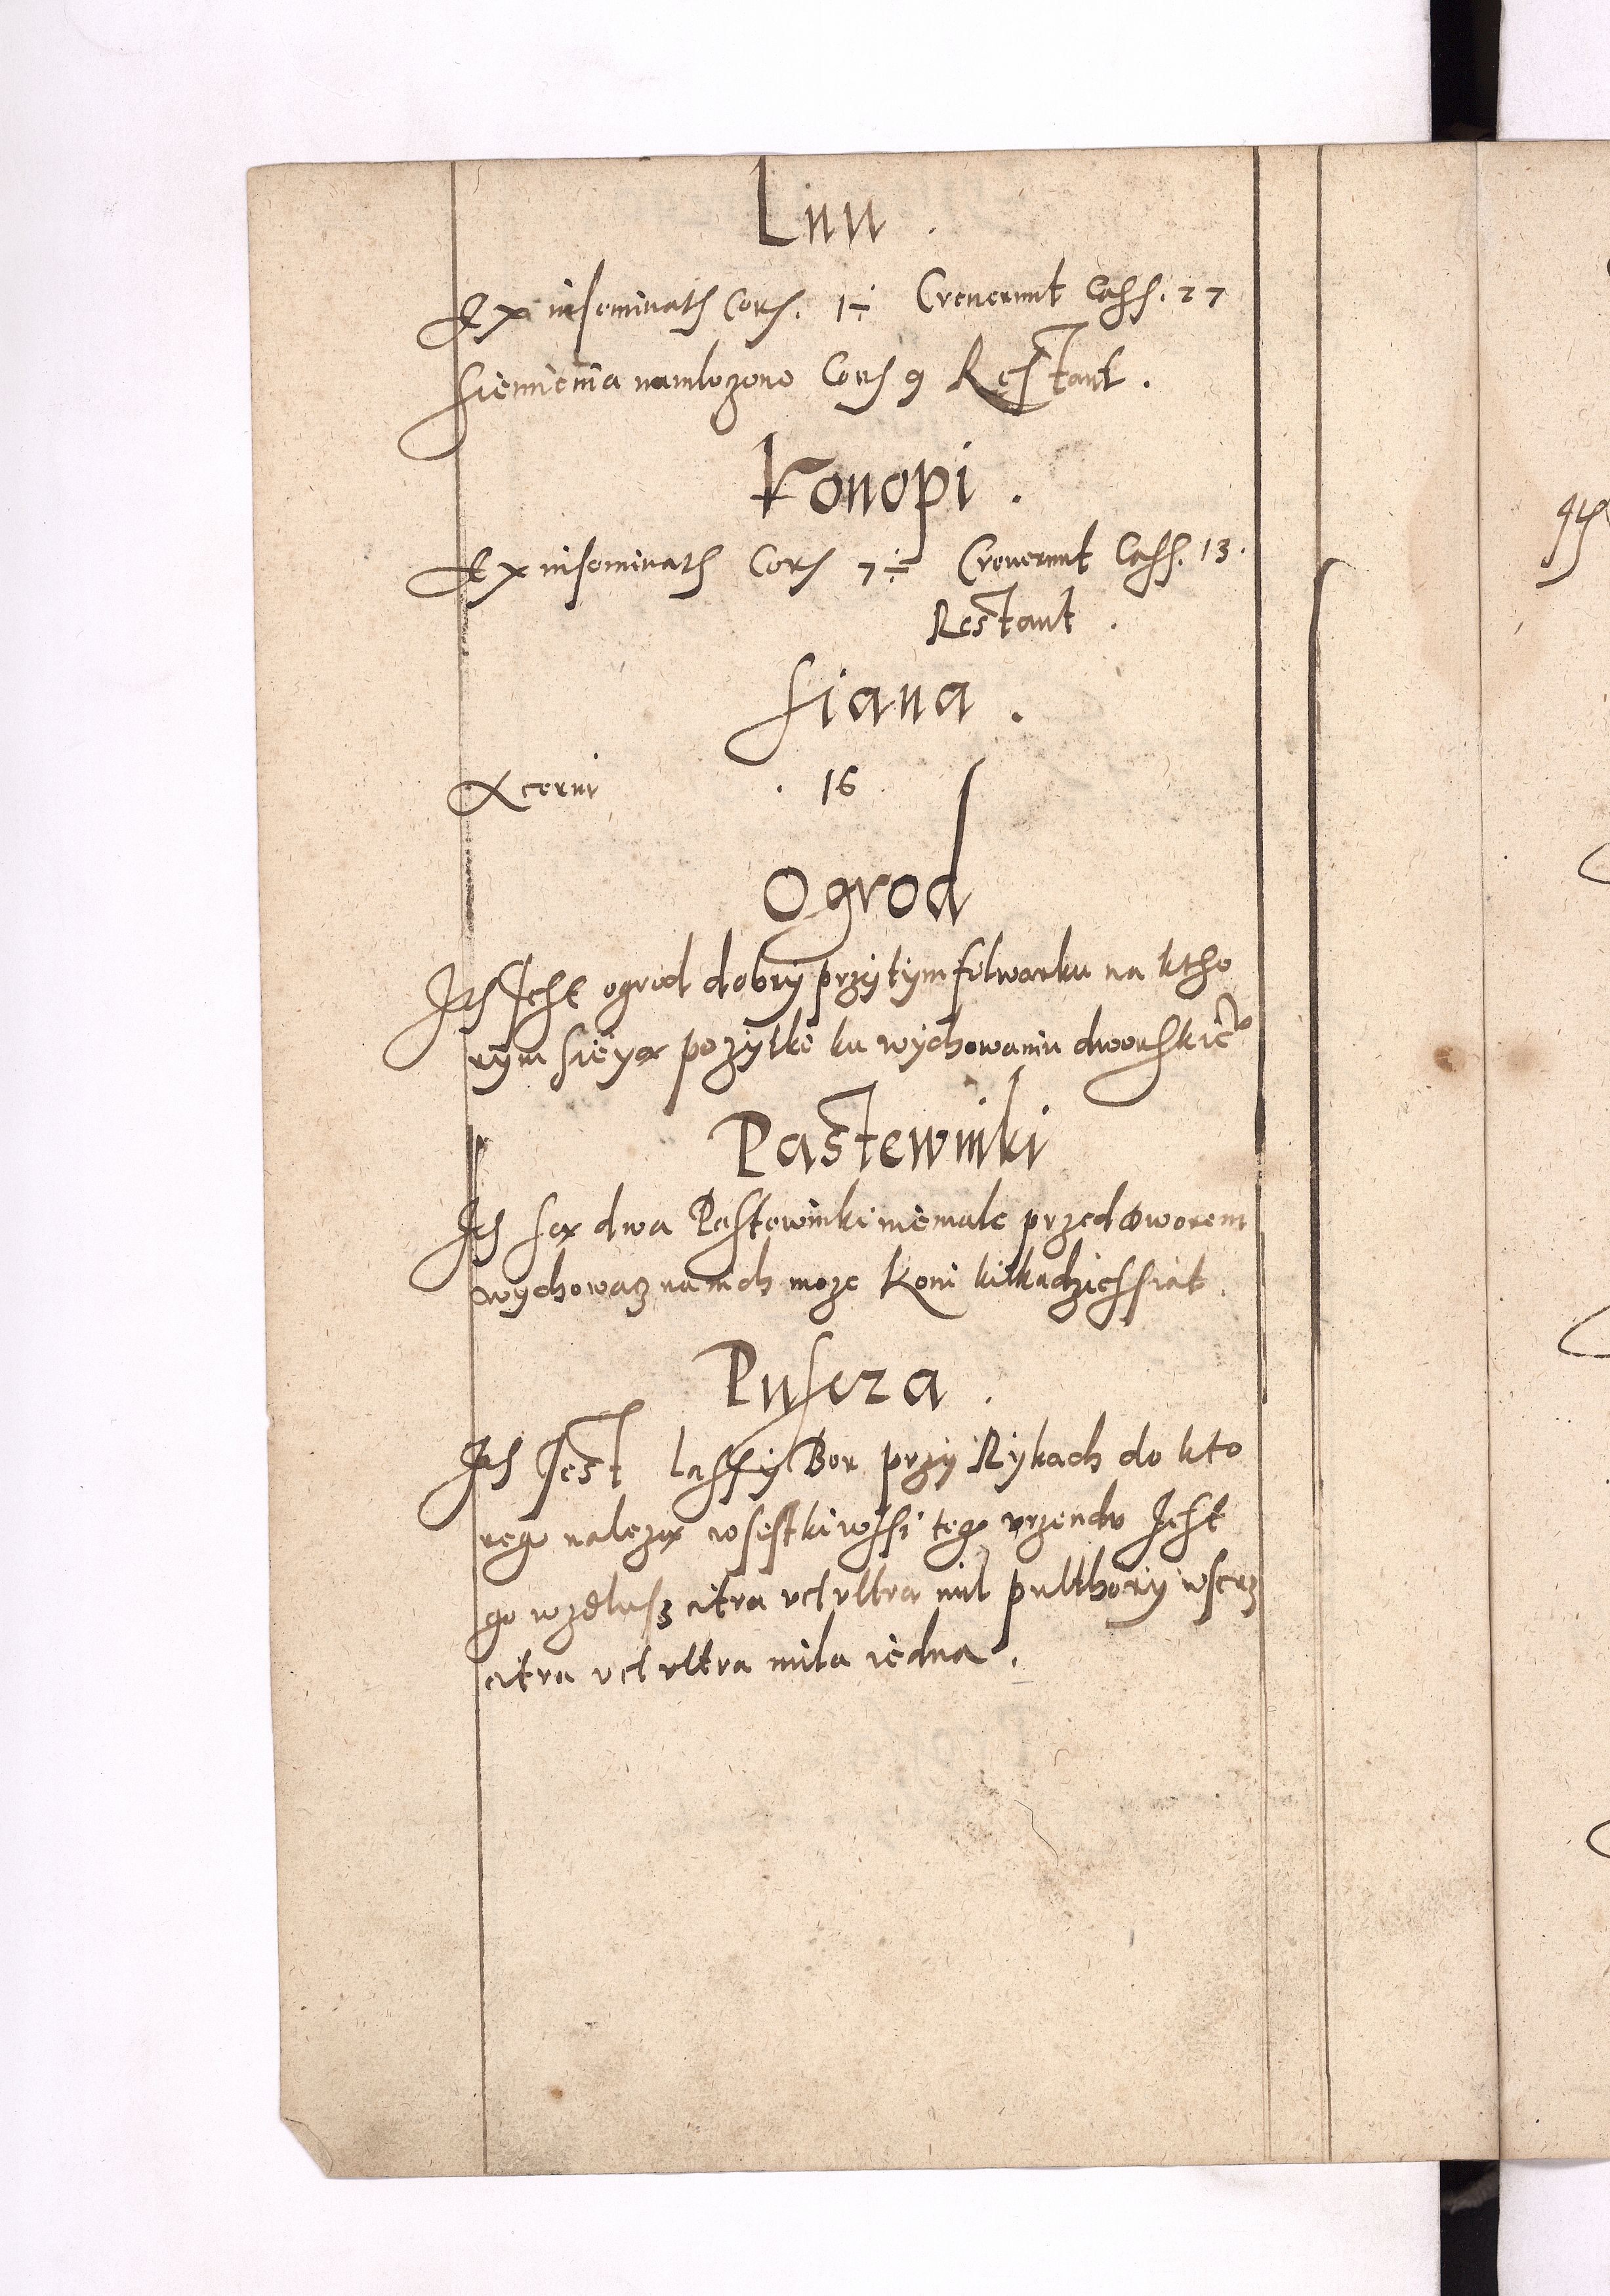 Lnu .
Ex inseminatis Cor. 1÷ Creuerunt Cass. 27
sieniemia namlozono Cor 9 Restant .
Konopi .
Ex inseminatis Cor 7÷ Creuerunt Cass. 13.
Restant .
Siana .
Acerui . 16 .
Ogrod
Jest ogrod dobry przy tym folwarku na ktho
rym sieyą pozytki ku wychowaniu dworskic
Pastewniki
są dwa Pastewniki niemale przed dworem
wychowaz na nich moze Koni kilkadziessiat .
Puscza .
Jest lassy Bor przy Rykach do kto
rego nalezą wsistki wssi tego vrzendv Jest
go wzdlusz citra vel vltra mil pulthory wserz
citra vel vltra mila iedna .